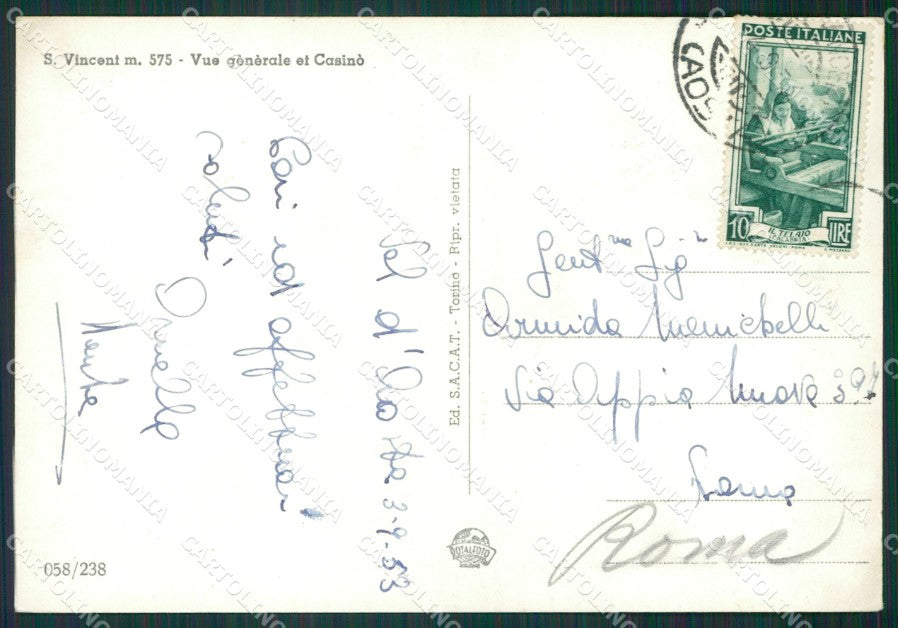 S. Vincent m. 575 - Vue gènèrale et Casinò
Val d'Aosta 3-9-53
Cari ed affettuosi
saluti
Ornella
Ed. S.A.C.A.T. - Torino - Ripr. vietata
POSTE ITALIANE
10 LIRE
IL TELAIO
CALABRIA
Gent.ma Sig.na
Armida Menichelli
Via Appia Nuova
Roma
Roma
TOTALFOTO
058/238
CARTOLINOMANIA